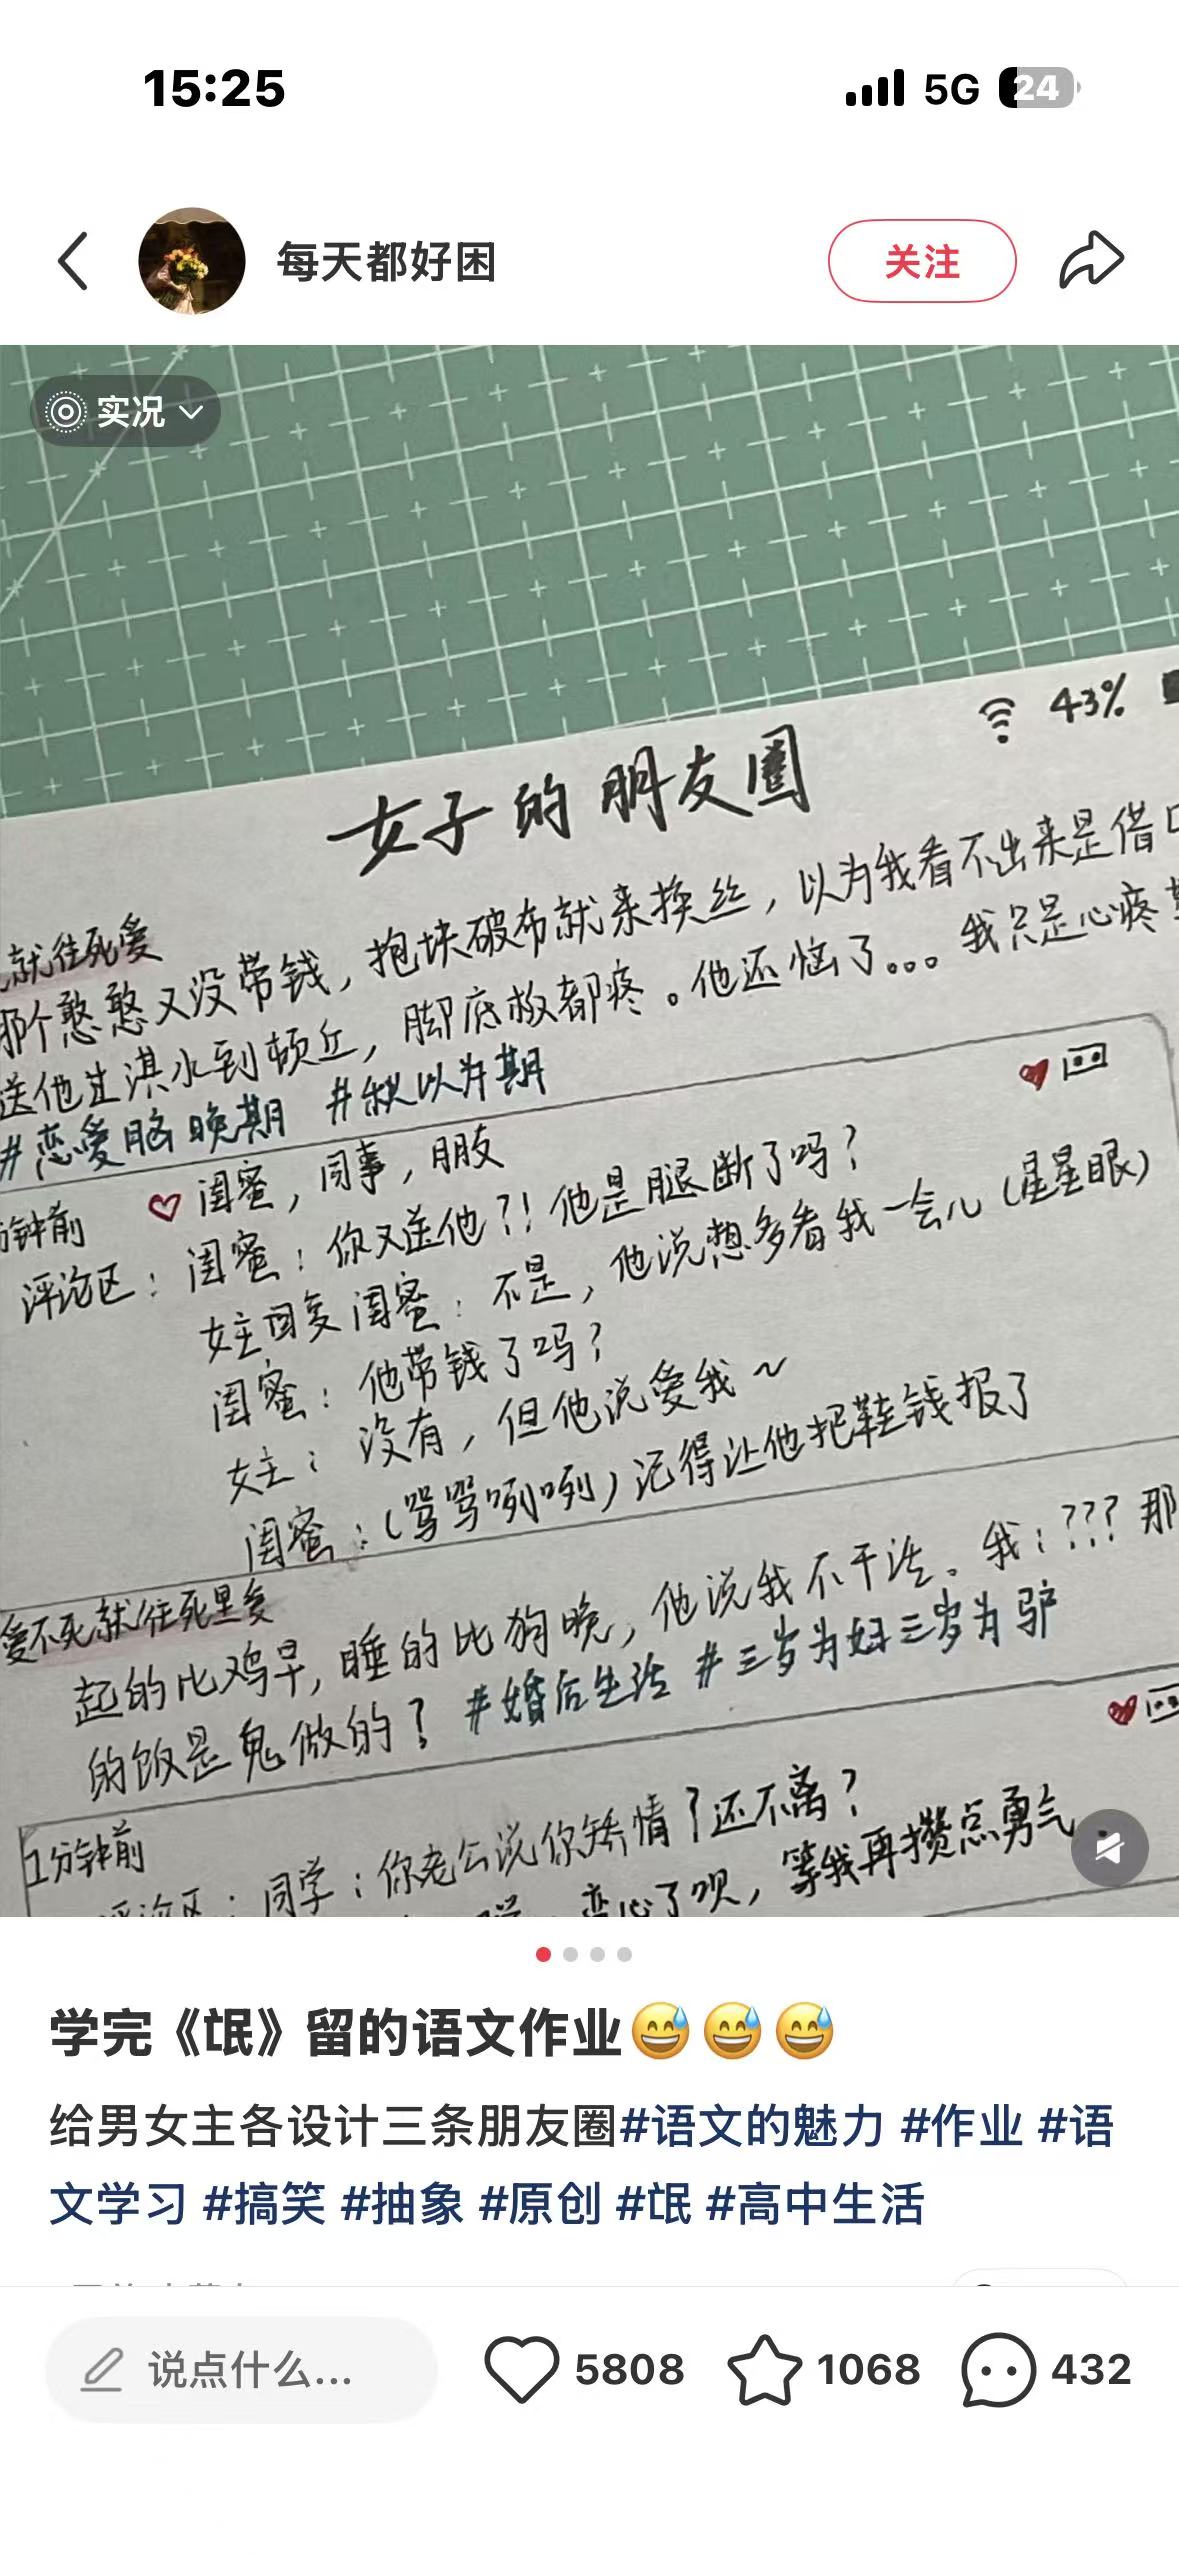 15:25
5G 24
每天都好困
关注
实况
43%
女子的朋友圈
就往死爱
那个憨憨又没带钱，抱块破布就来换丝，以为我看不出来是借口
送他过淇水到顿丘，脚底板都疼。他还恼了。。。我只是心疼
#恋爱脑晚期 #秋以为期
分钟前 ♡ 闺蜜，同事，朋友
评论区：闺蜜：你又送他？！他是腿断了吗？
女主回复闺蜜：不是，他说想多看我一会儿（星星眼）
闺蜜：他带钱了吗？
女主：没有，但他说爱我～
闺蜜：（骂骂咧咧）记得让他把鞋钱报了
爱不死就往死里爱
起的比鸡早，睡的比狗晚，他说我不干活。我：？？？那
的饭是鬼做的？ #婚后生活 #三岁为妇三岁为驴
1分钟前
评论区：同学：你老公说你矫情了还不离？
变心了呗，等我再攒点勇气
学完《氓》留的语文作业😅😅😅
给男女主各设计三条朋友圈#语文的魅力 #作业 #语
文学习 #搞笑 #抽象 #原创 #氓 #高中生活
说点什么...
5808
1068
432